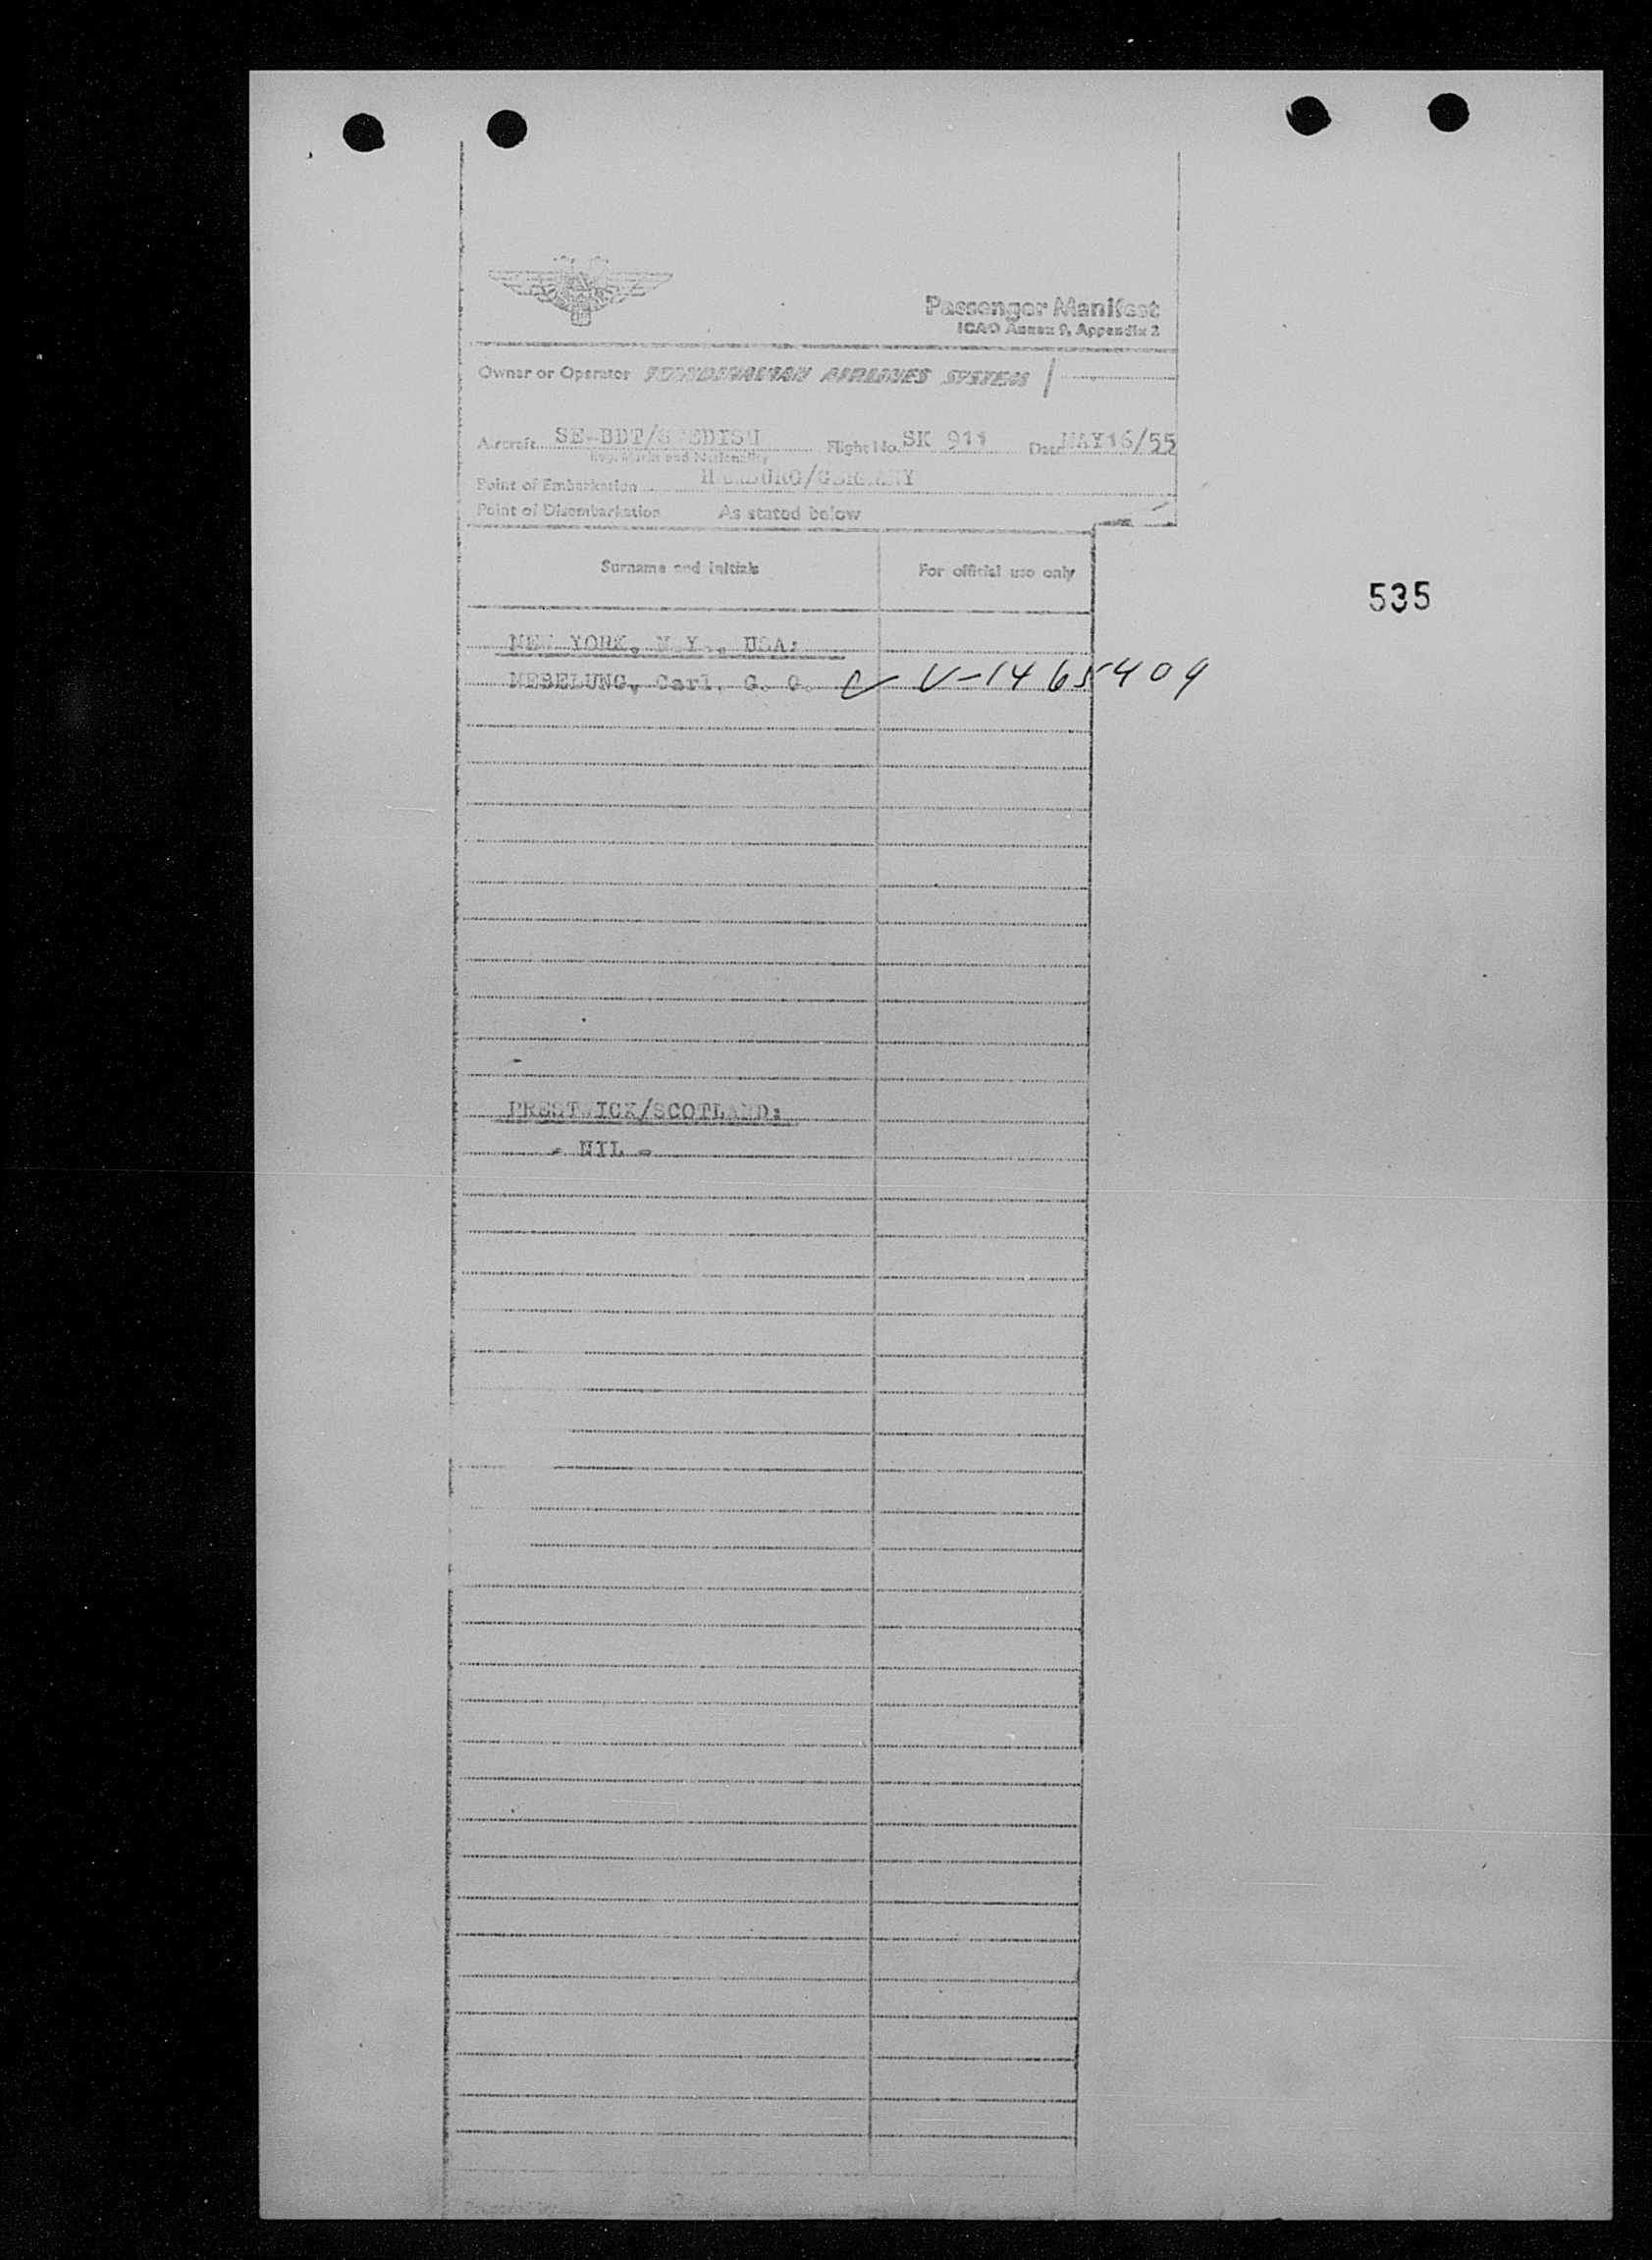 Passenger Manifest
ICAO Annex 9, Appendix 2
Owner or Operator SCANDINAVIAN AIRLINES SYSTEM
Aircraft SE-BDT/SWEDISH Flight No. SK 911 Date MAY16/55
Reg. Marks and Nationality
Point of Embarkation HAMBURG/GERMANY
Point of Disembarkation As stated below
Surname and initials For official use only
535
NEW YORK, N.Y., USA:
NEBELUNG, Carl, G. O. V-1465409
PRESTWICK/SCOTLAND:
- NIL -
Prepared by